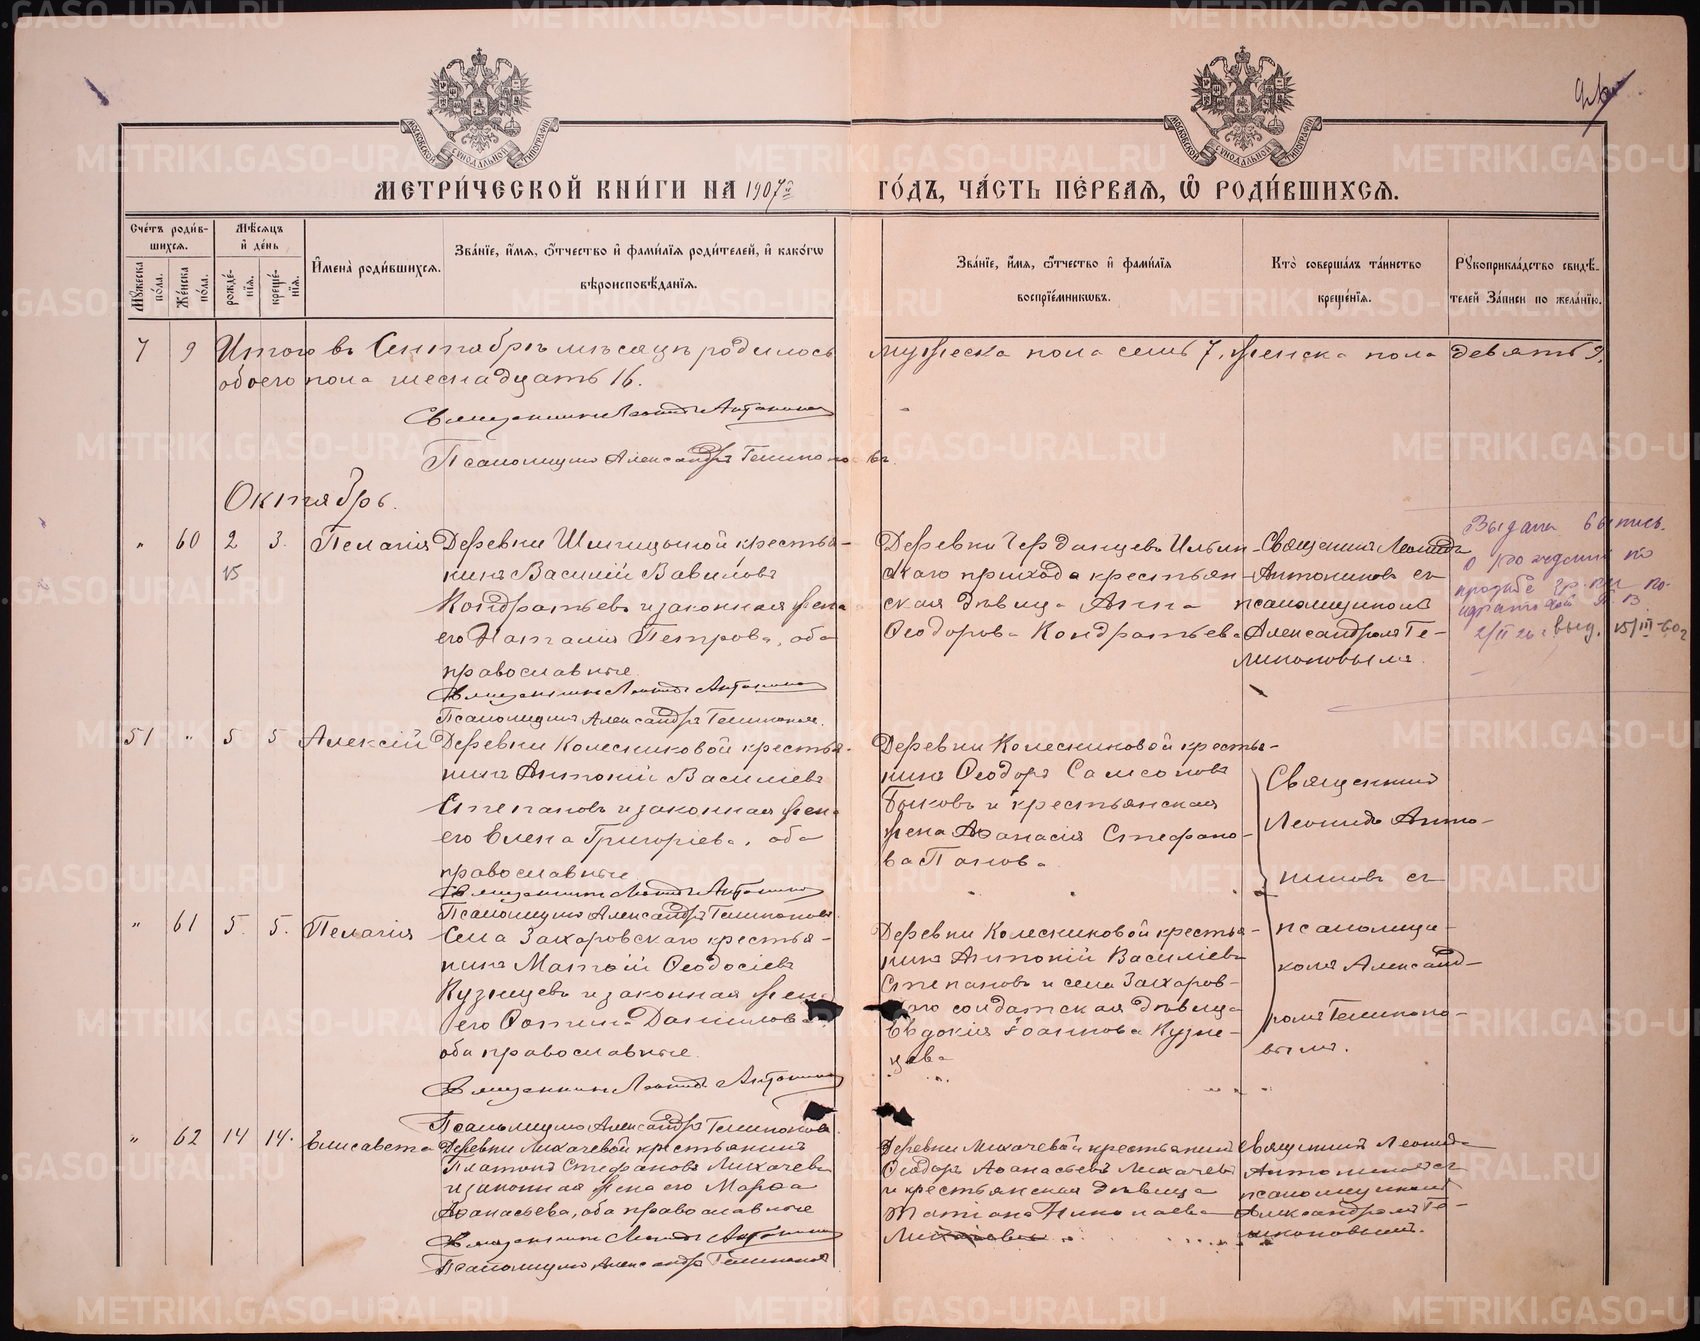 МОСКОВСКОЙ СѴНОДАЛЬНОЙ ТИПОГРАФІИ
МОСКОВСКОЙ СѴНОДАЛЬНОЙ ТИПОГРАФІИ
МЕТРИ́ЧЕСКОЙ КНИ́ГИ НА 1907й ГО́ДЪ, ЧА́СТЬ ПЕ́РВАЯ, Ѡ РОДИ́ВШИХСЯ.
Сче́тъ роди́в-
шихся.
Мꙋ́жеска по́ла.
Же́нска по́ла.
Мѣ́сяцъ
и҆ де́нь
рожде́-
нїя.
креще́-
нїя.
И҆мена̀ роди́вшихся.
Зва́нїе, и҆́мя, ѻ҆́тчество и҆ фами́лїя роди́телей, и҆ како́гѡ
вѣроисповѣ́данїя.
Зва́нїе, и҆́мя, ѻ҆́тчество и҆ фами́лїя
воспрїе́мникѡвъ.
Кто̀ соверша́лъ та́инство
креще́нїя.
Рꙋкоприкла́дство свидѣ́-
телей За́писи по жела́нїю.
7 9 Итого въ Сентябрѣ мѣсяцѣ родилось мужеска пола семь 7, женска пола девять 9,
обоего пола шестнадцать 16.
Священникъ Леонидъ Антониновъ
Псаломщикъ Александръ Геликоновъ.
Октябрь.
" 60 2 3. Пелагія
15
Деревни крестья-
нинъ Василій Вавиловъ
Кондратьевъ и законная жена
его Наталія Петрова, оба
православные
Священникъ Леонидъ Антониновъ
Псаломщикъ Александръ Геликоновъ.
Деревни Черданцевъ Ильин-
скаго прихода крестьян-
ская дѣвица Анна
Ѳеодорова Кондратьева
Священникъ Леонидъ
Антониновъ съ
псаломщикомъ
Александромъ Ге-
ликоновымъ.
Выдана выпись
о рождении по
просьбе гр-ки Ко-
ндратьевой
выд. 15/III-60г
51 " 5 5 Алексій
Деревни Колесниковой крестья-
нинъ Антоній Василіевъ
Степановъ и законная жена
его Елена Григоріева, оба
православные
Священникъ Леонидъ Антониновъ
Псаломщикъ Александръ Геликоновъ.
Деревни Колесниковой крестья-
нинъ Ѳеодоръ Самсоновъ
Быковъ и крестьянская
жена Аѳанасія Стефано-
ва Панова
Священникъ
Леонидъ Анто-
ниновъ съ
псаломщи-
комъ Александ-
ромъ Геликоно-
вымъ.
" 61 5. 5. Пелагія
Села Захаровскаго крестья-
нинъ Матѳій Ѳеодосіевъ
Кузнецовъ и законная жена
его Фотина Даніилова
оба православные.
Священникъ Леонидъ Антониновъ
Псаломщикъ Александръ Геликоновъ
Деревни Колесниковой крестья-
нинъ Антоній Василіевъ
Степановъ и села Захаров-
скаго солдатская дѣвица
Евдокія Іоаннова Кузне-
цова
" 62 14 14. Елисавета
Деревни Лихачевой крестьянинъ
Платонъ Стефановъ Лихачевъ
и законная жена его Марѳа
Аѳанасьева, оба православные
Священникъ Леонидъ Антониновъ
Псаломщикъ Александръ Геликоновъ
Деревни Лихачевой крестьянинъ
Ѳеодоръ Аѳанасьевъ Лихачевъ
и крестьянская дѣвица
Татіана Николаева
Лихачева
Священникъ Леонидъ
Антониновъ съ
псаломщикомъ
Александромъ Ге-
ликоновымъ.
METRIKI.GASO-URAL.RU